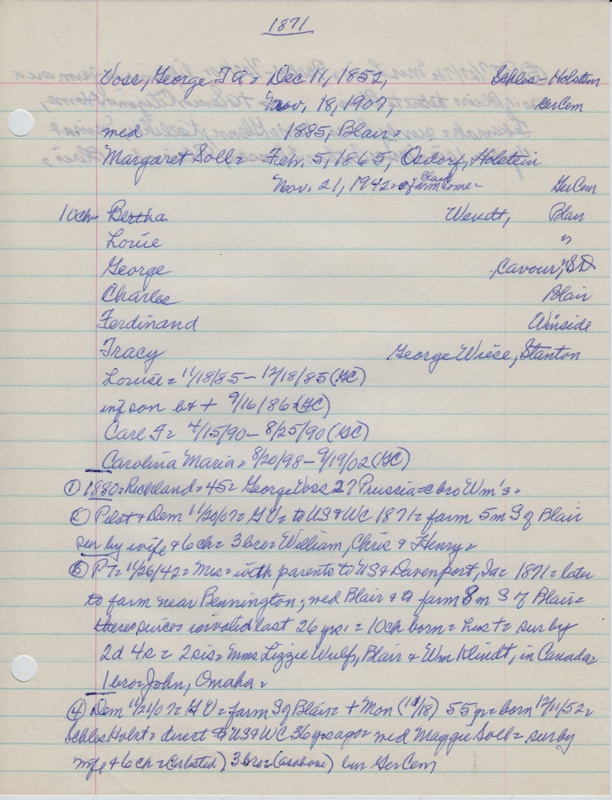 1871
Voss, George = Dec 11, 1852, Schles-Holstein
Nov. 18, 1907, GerCem
med 1885, Blair =
Margaret Soll = Feb. 5, 1865, Osdorf, Holstein
Nov. 21, 1942 = @ Blair farm home = GerCem
10ch = Bertha Wendt, Blair
Louie "
George Cavour, SD
Charles Blair
Ferdinand Winside
Tracy George Wiese, Stanton
Louise = 11/18/85 - 12/18/85 (GC)
inf son b & + 9/16/86 = (GC)
Carl F = 4/15/90 - 8/25/90 (GC)
Carolina Maria = 8/20/98 - 9/19/02 (GC)
① 1880 = Richland = 45 = George Voss 27 Prussia = bro Wm's =
② Pilot & Dem 11/20/07 = GV = to US & WC 1871 = farm 5m S of Blair
sur by wife & 6 ch = 3 bro = William, Chris & Henry =
③ PT = 11/26/42 = Mrs = with parents to US & Davenport, Ia = 1871 = later
to farm near Bennington; med Blair & to farm 8m S of Blair =
there since = invalid last 26 yrs. = 10ch born = hus + = sur by
2d 4s = 2 sis = Mmes Lizzie Wulf, Blair & Wm Klindt, in Canada =
1 bro = John, Omaha =
④ Dem 11/21/07 = GV = farm S of Blair = + Mon (11/18) 55 yr = born 12/11/52 =
Schles Holst = direct to US & WC 36 yrs ago = med Maggie Soll = sur by
wife & 6 ch = (listed), 3 bro = (as above) bur GerCem